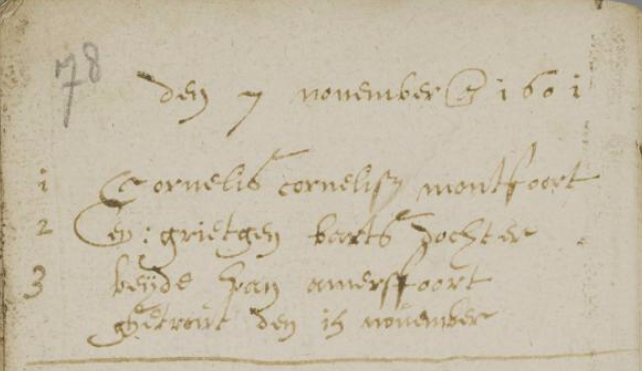 78
den 7 november @ 1601
1 Cornelis cornelisz montfoort
2 en: grietgen barts dochter
3 beyde van amersfoort
getrout den 15 november